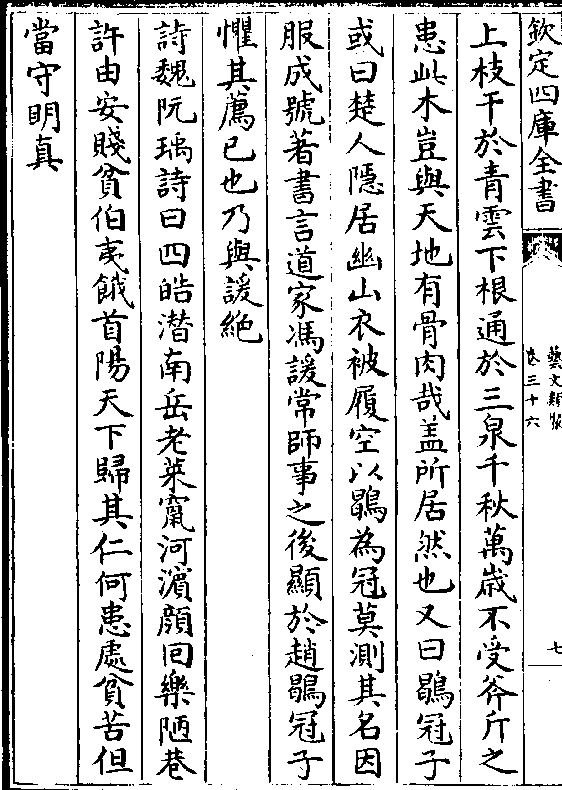 欽定四庫全書
藝文類聚
卷三十六
七
上枝干於青雲下根通於三泉千秋萬歲不受斧斤之
患此木豈與天地有骨肉哉盖所居然也又曰鶡冠子
或曰楚人隱居幽山衣被履空以鶡為冠莫測其名因
服成號著書言道家馮諼常師事之後顯於趙鶡冠子
懼其薦已也乃與諼絶
詩魏阮瑀詩曰四皓潛南岳老莱竄河濵顔回樂陋巷
許由安賤貧伯夷餓首陽天下歸其仁何患處貧苦但
當守明真